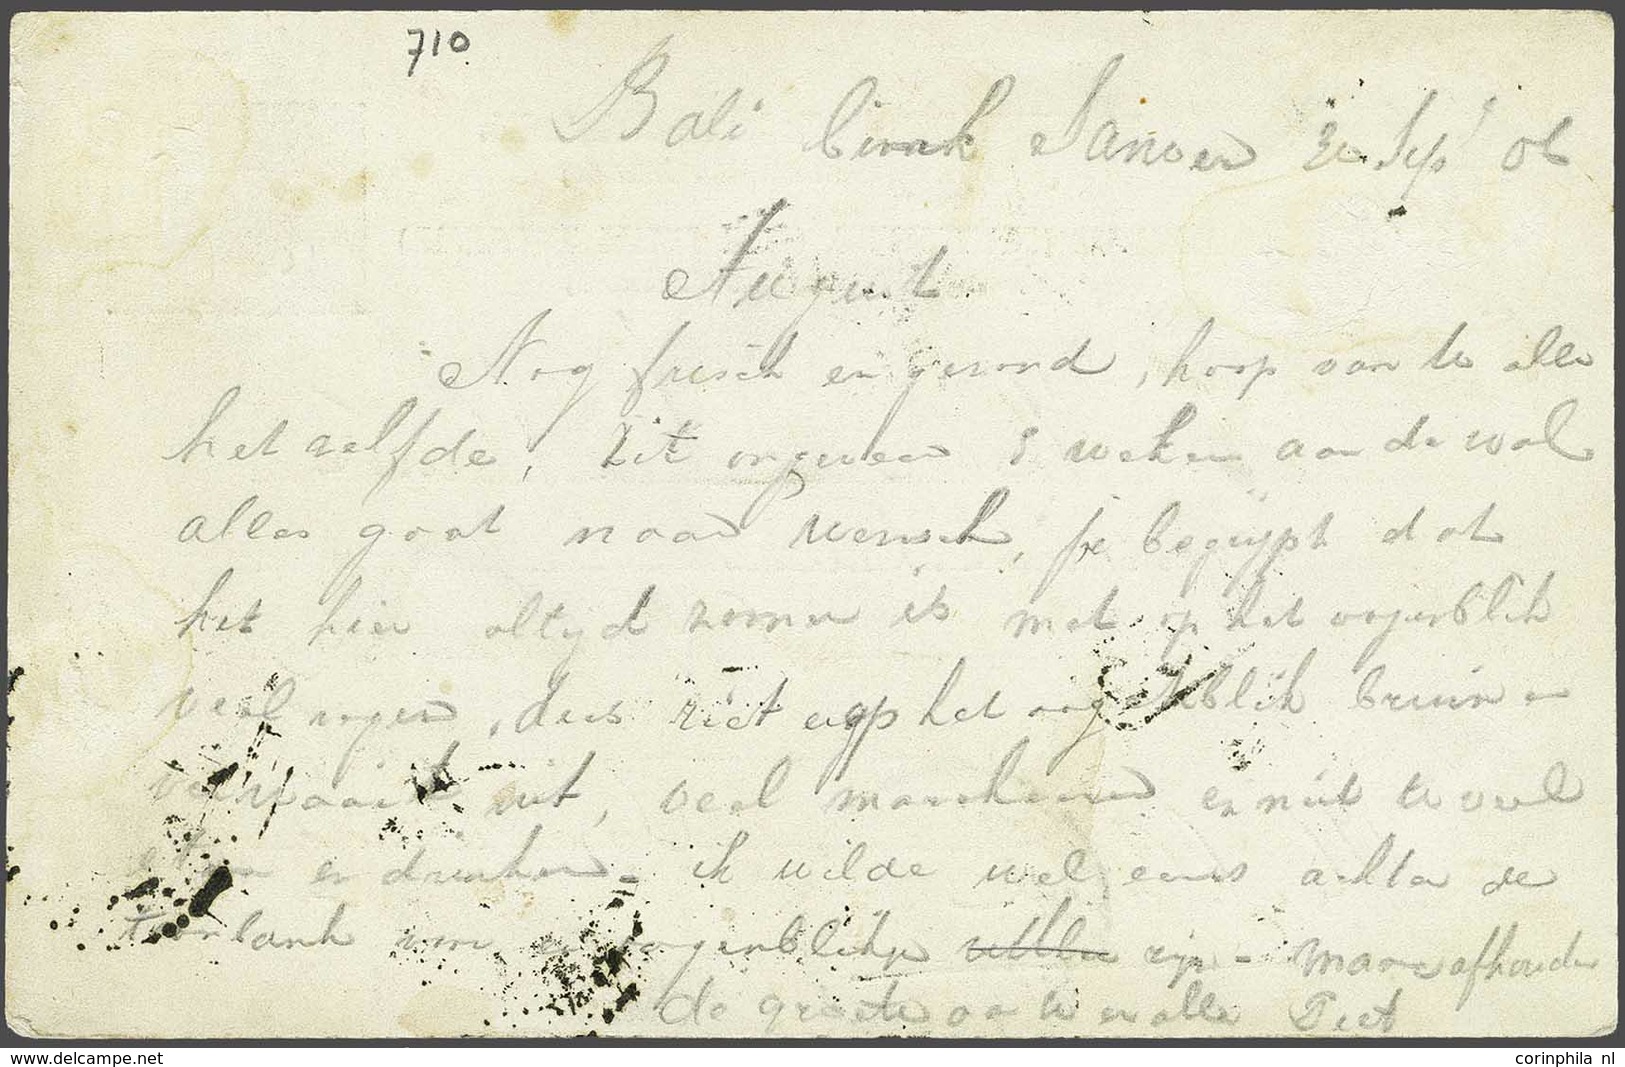 710
Bali Sanoer Sep' 06
August
Nog frisch en gezond, hoop van te alle
het zelfde, Zit ongeveer 5 weken aan de wal
alles gaat naar wensch, je begrijpt dat
het hier altyd zomer is met op het oogenblik
veel regen, dus ziet er op het oogenblik bruin en
verwaait uit, veel marcheeren en niet te veel
eten en drinken - ik wilde wel eens achter de
toonbank oogenblikje zijn -
de groete aan en alle Piet
corinphila nl